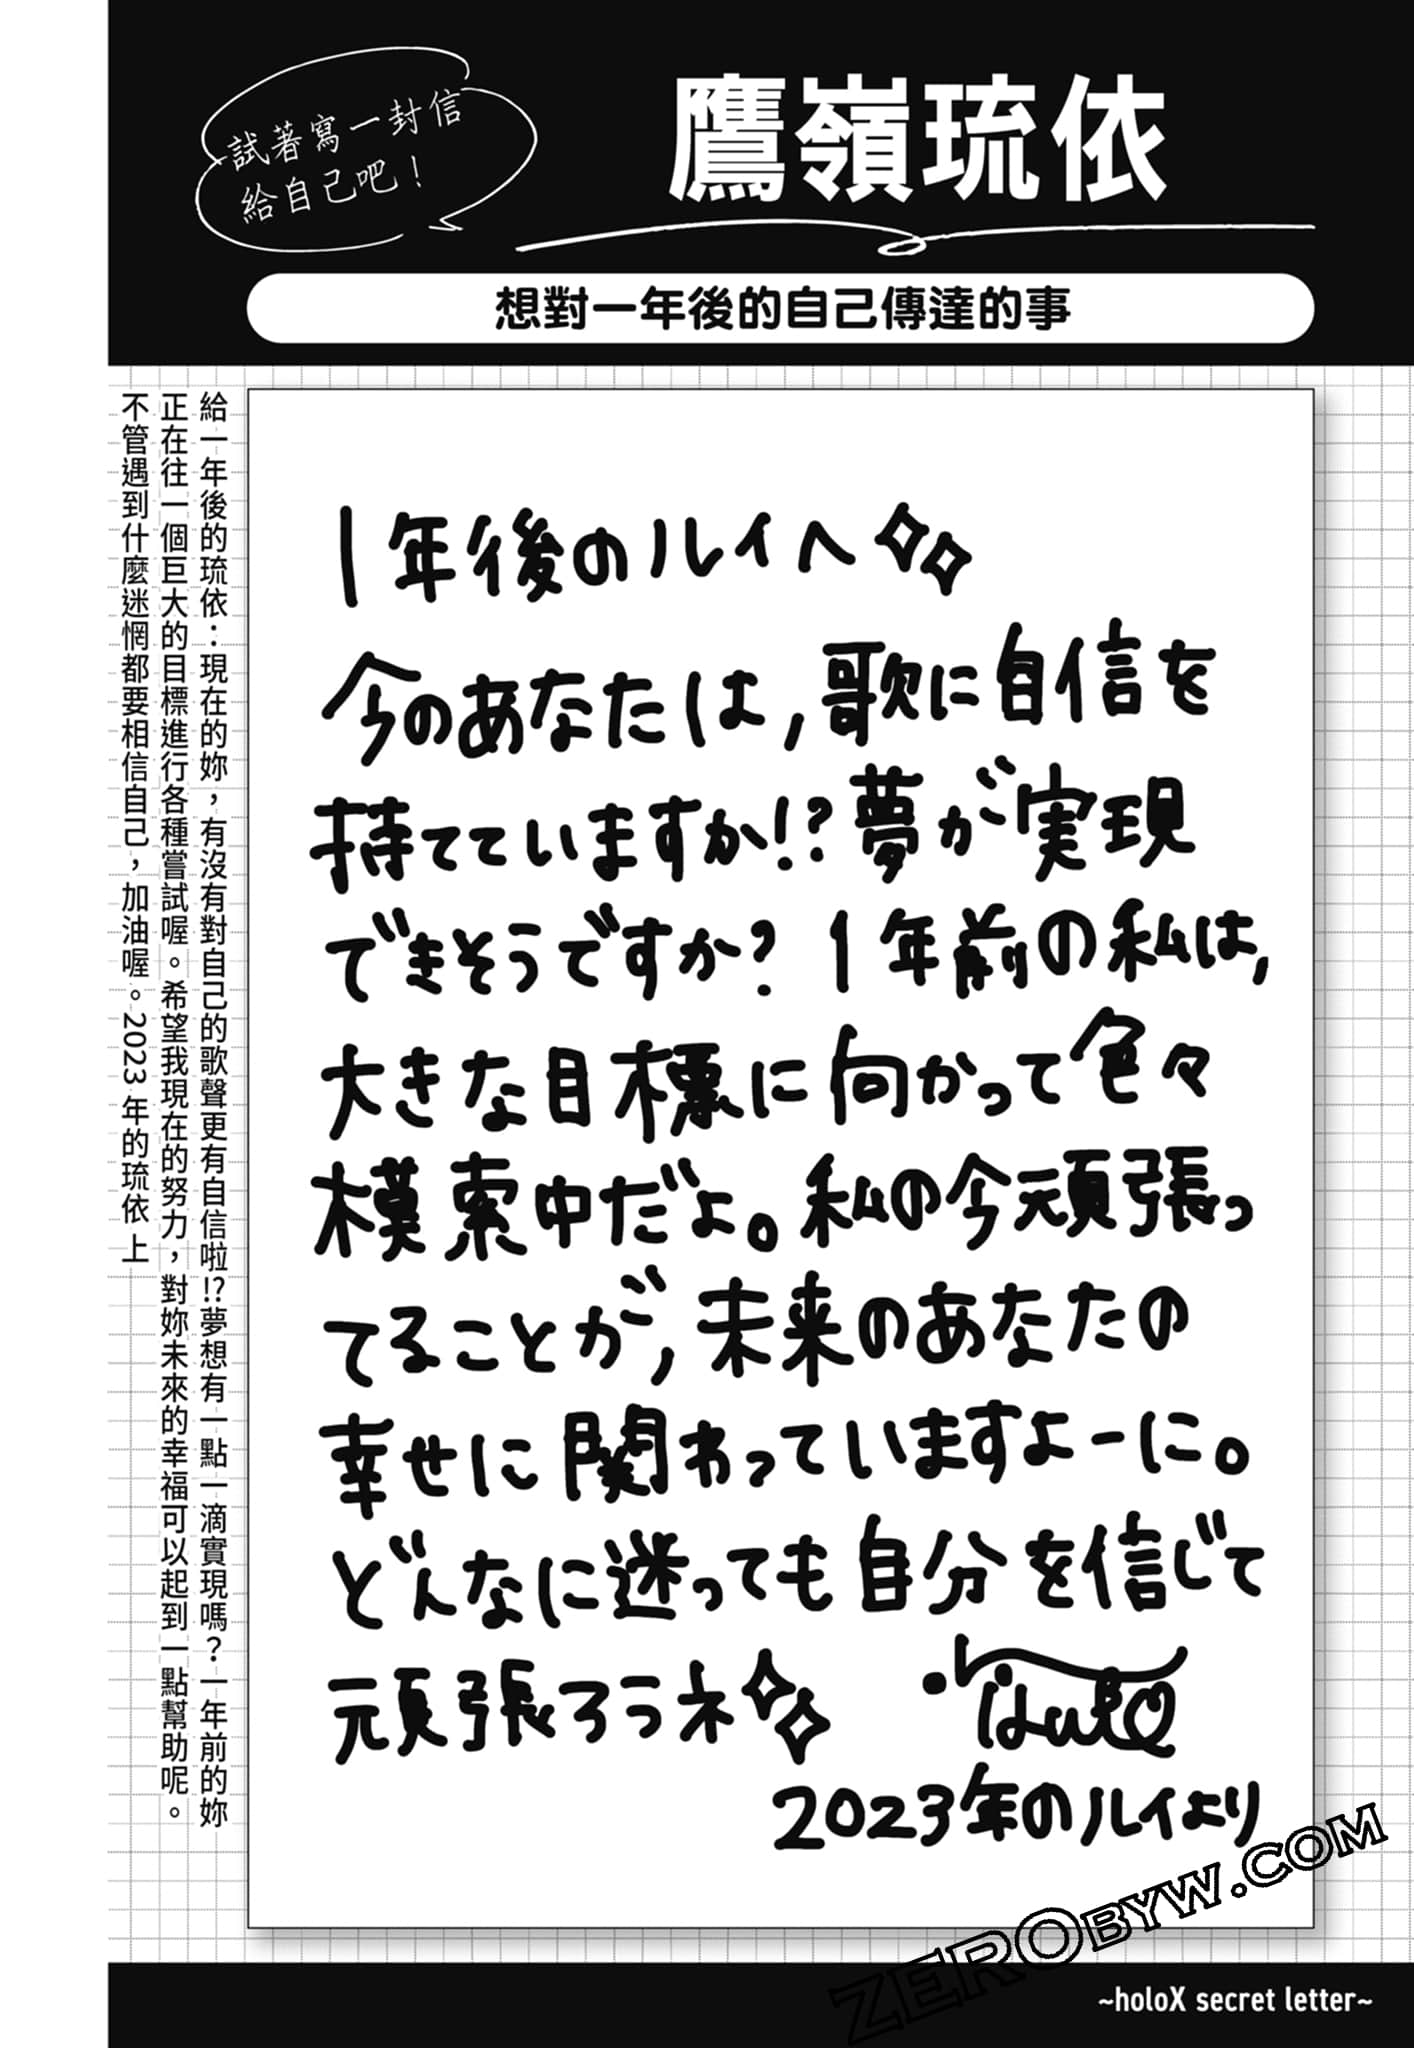 試著寫一封信
給自己吧！
鷹嶺琉依
想對一年後的自己傳達的事
1年後のルイへ
今のあなたは,歌に自信を
持てていますか!?夢が実現
できそうですか? 1年前の私は,
大きな目標に向かって色々
模索中だよ。私の今頑張っ
てることが,未来のあなたの
幸せに関わっていますよーに。
どんなに迷っても自分を信じて
頑張ろうネ
2023年のルイより
給一年後的琉依：現在的妳，有沒有對自己的歌聲更有自信啦!?夢想有一點一滴實現嗎？一年前的妳
正在往一個巨大的目標進行各種嘗試喔。希望我現在的努力，對妳未來的幸福可以起到一點幫助呢。
不管遇到什麼迷惘都要相信自己，加油喔。2023年的琉依 上
ZEROBYW.COM
~holoX secret letter~